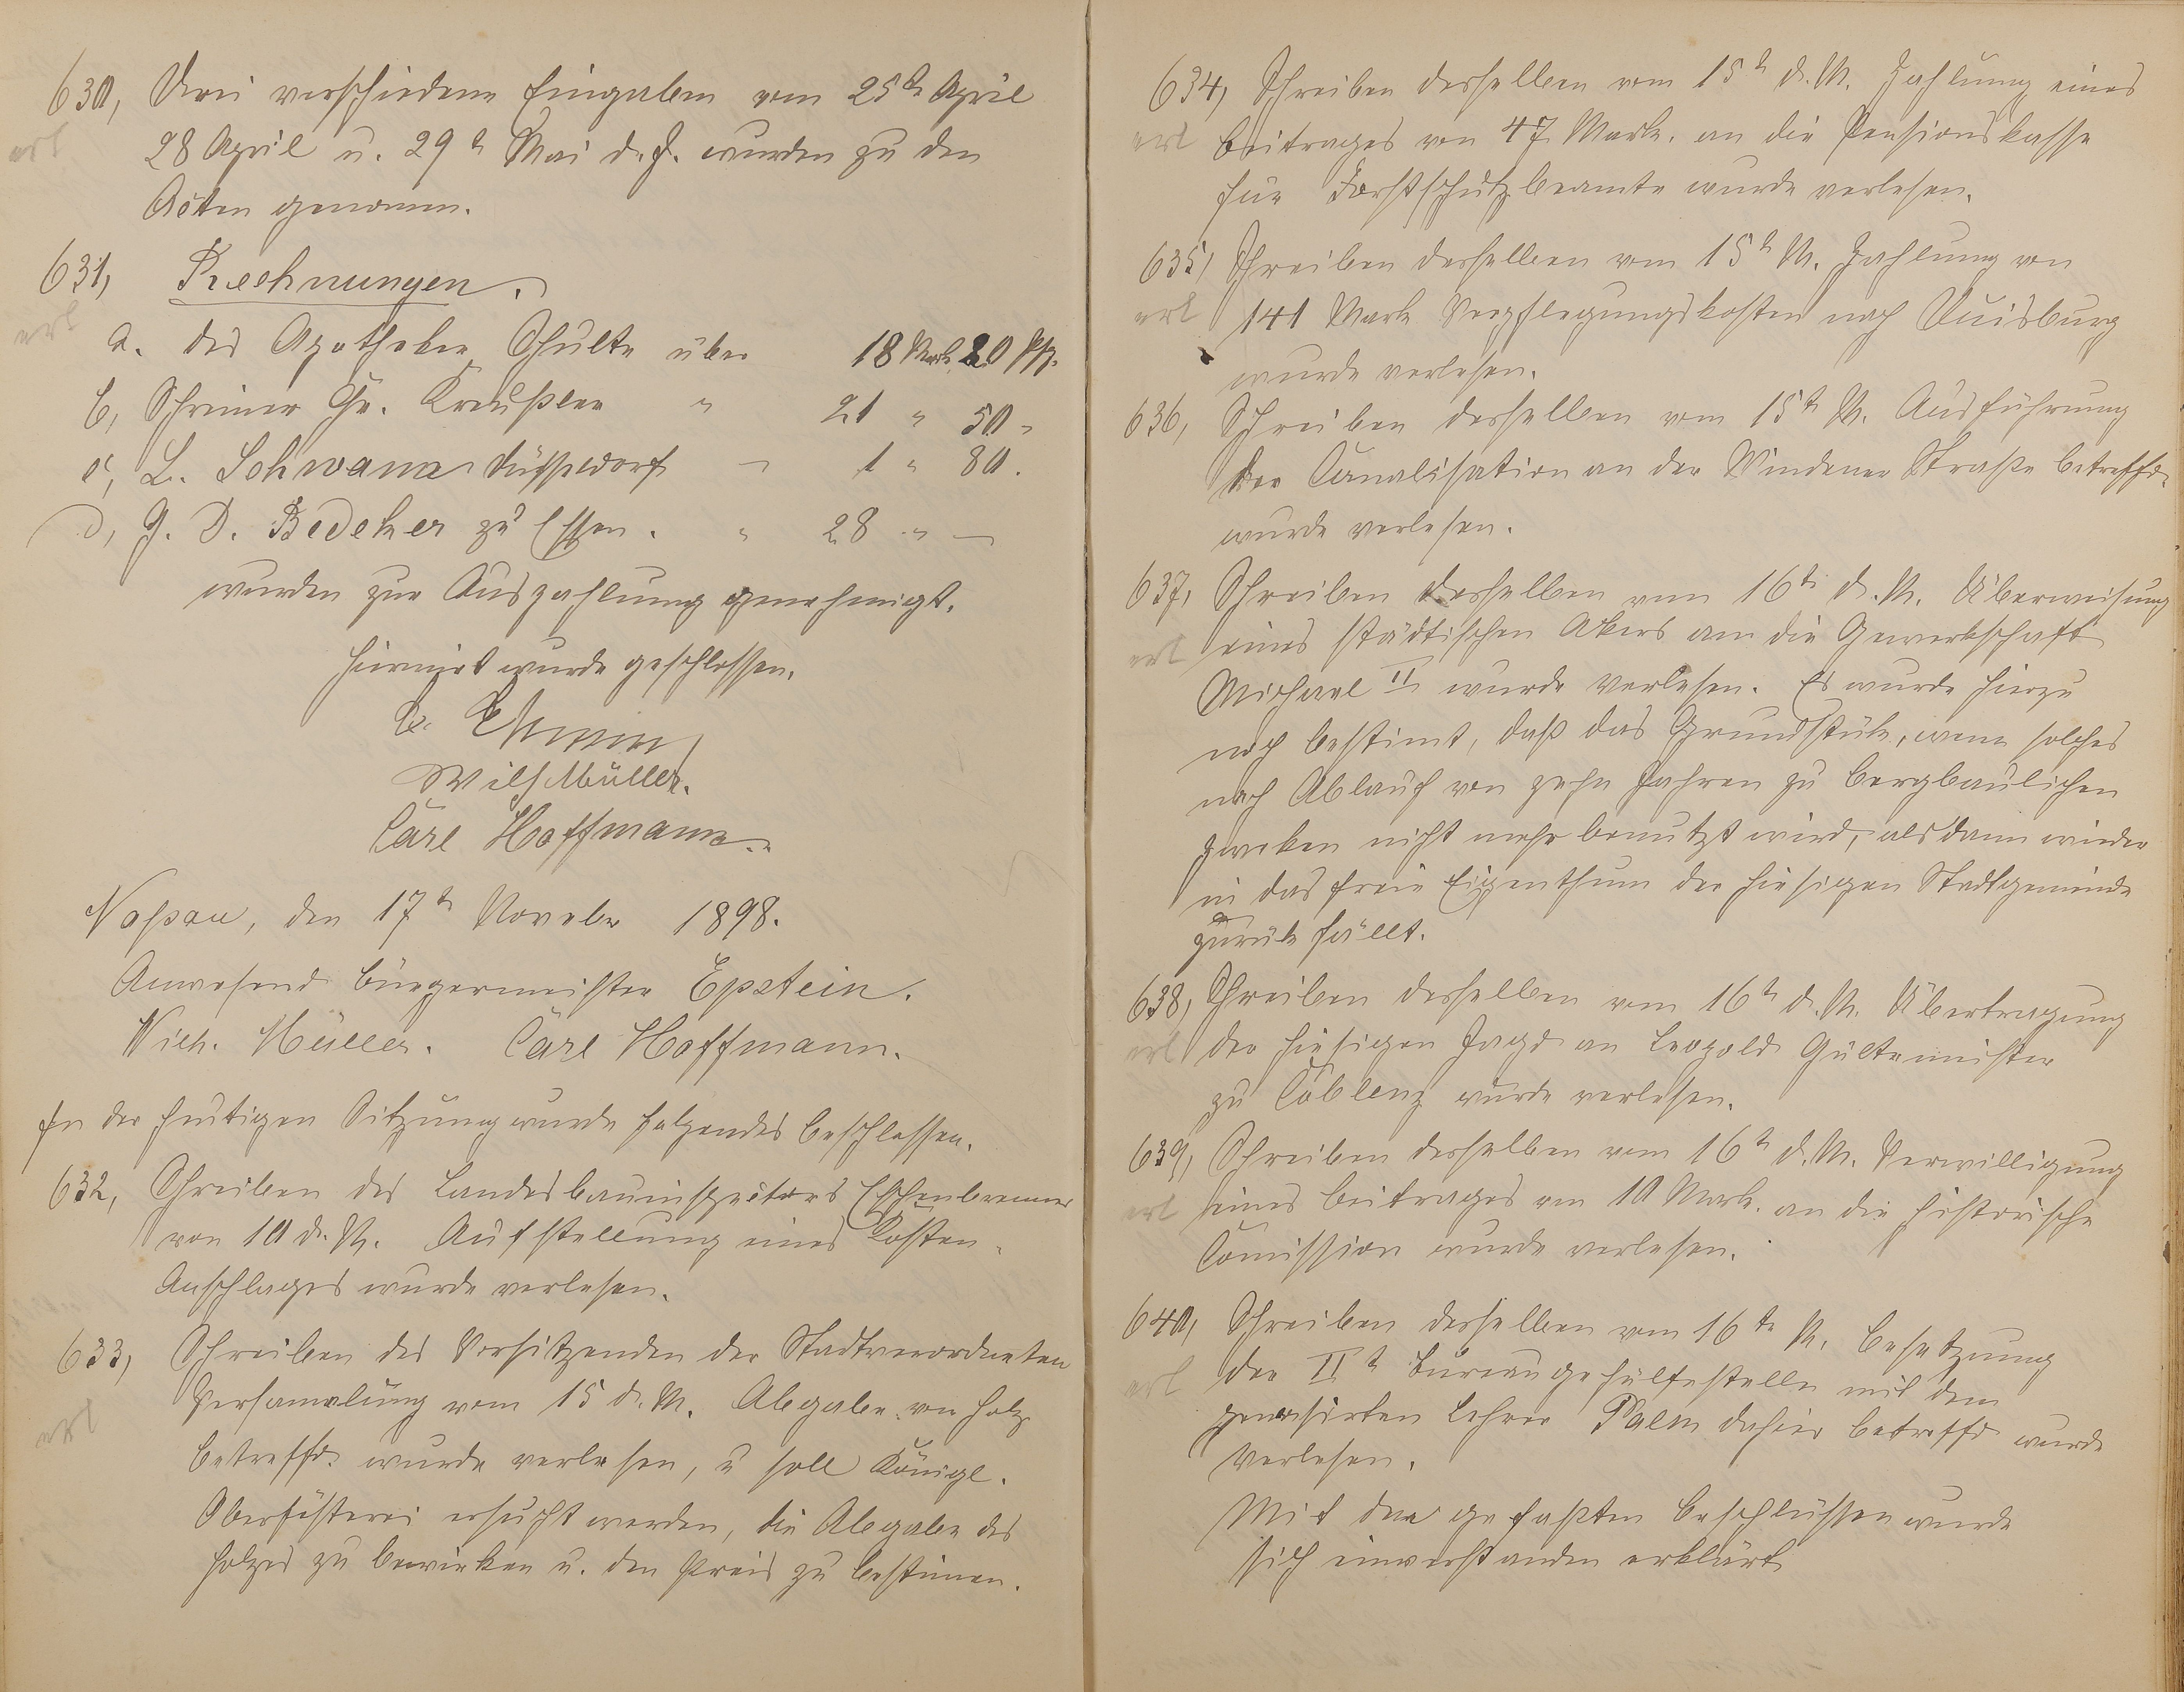 630, Drei verschiedene Eingaben vom 25t April
erl
28 April u. 29t Mai d. J. wurden zu den
Acten genomen.
631, Rechnungen.
erl
a. des Apotheker Schulte über 18 Mark 20 Pfg.
b, Schreiner Chr. Kreußler " 21 " 50 "
c, L. Schwann Düsseldorf " 1 " 80.
d, G. D. Bedeker zu Essen. " 28 " —
wurden zur Auszahlung genehmigt.
Hiermit wurde geschlossen.
Wilh Müller.
Carl Hoffmann.
Nassau, den 17t Novebr 1898.
Anwesend Bürgermeister Epstein.
Wilh. Müller. Carl Hoffmann.
In der heutigen Sitzung wurde folgendes beschlossen.
632, Schreiben des Landesbauinspectors Eschenbrenner
von 10 d. M. Aufstellung eines Kosten-
Anschlages wurde verlesen.
633, Schreiben des Vorsitzenden der Stadtverordneten
Versamlung vom 15 d. M. Abgabe von Holz
erl
betreffd. wurde verlesen, u soll Königl.
Oberfösterei ersucht werden, die Abgabe des
Holzes zu bewirken u. den Preis zu bestimen.
634, Schreiben desselben vom 15t d. M. Zahlung eines
erl Beitrages von 47 Mark. an die Pensionskasse
für Forstschutzbeamte wurde verlesen.
635, Schreiben desselben vom 15t M. Zahlung von
erl 141 Mark Verpflegungskosten nach Duisburg
wurde verlesen.
636, Schreiben desselben vom 15t M. Ausführung
der Canalisation an der Windener Straße betreffd.
wurde verlesen.
637, Schreiben desselben vom 16t d. M. Überweisung
erl eines städtischen Akers an die Gewerkschaft
Michael II wurde verlesen. Es wurde hierzu
noch bestimt, daß das Grundstük, wenn solches
nach Ablauf von zehn Jahren zu bergbaulichen
Zweken nicht mehr benutzt wird, alsdann wieder
in das freie Eigenthum der hiesigen Stadtgemeinde
zurük fällt.
638, Schreiben desselben vom 16t d. M. Übertragung
erl der hiesigen Jagd an Leopold Gültemeister
zu Coblenz wurde verlesen.
639, Schreiben desselben vom 16t d. M. Verwilligung
erl eines Beitrages von 10 Mark. an die historische
Comission wurde verlesen.
640, Schreiben desselben vom 16te M. Besetzung
erl der IIt Bureaugehülfestelle mit dem
pensionirten Lehrer Palm dahier betreffd wurde
verlesen.
Mit den gefaßten Beschlüssen wurde
sich einverstanden erklärt